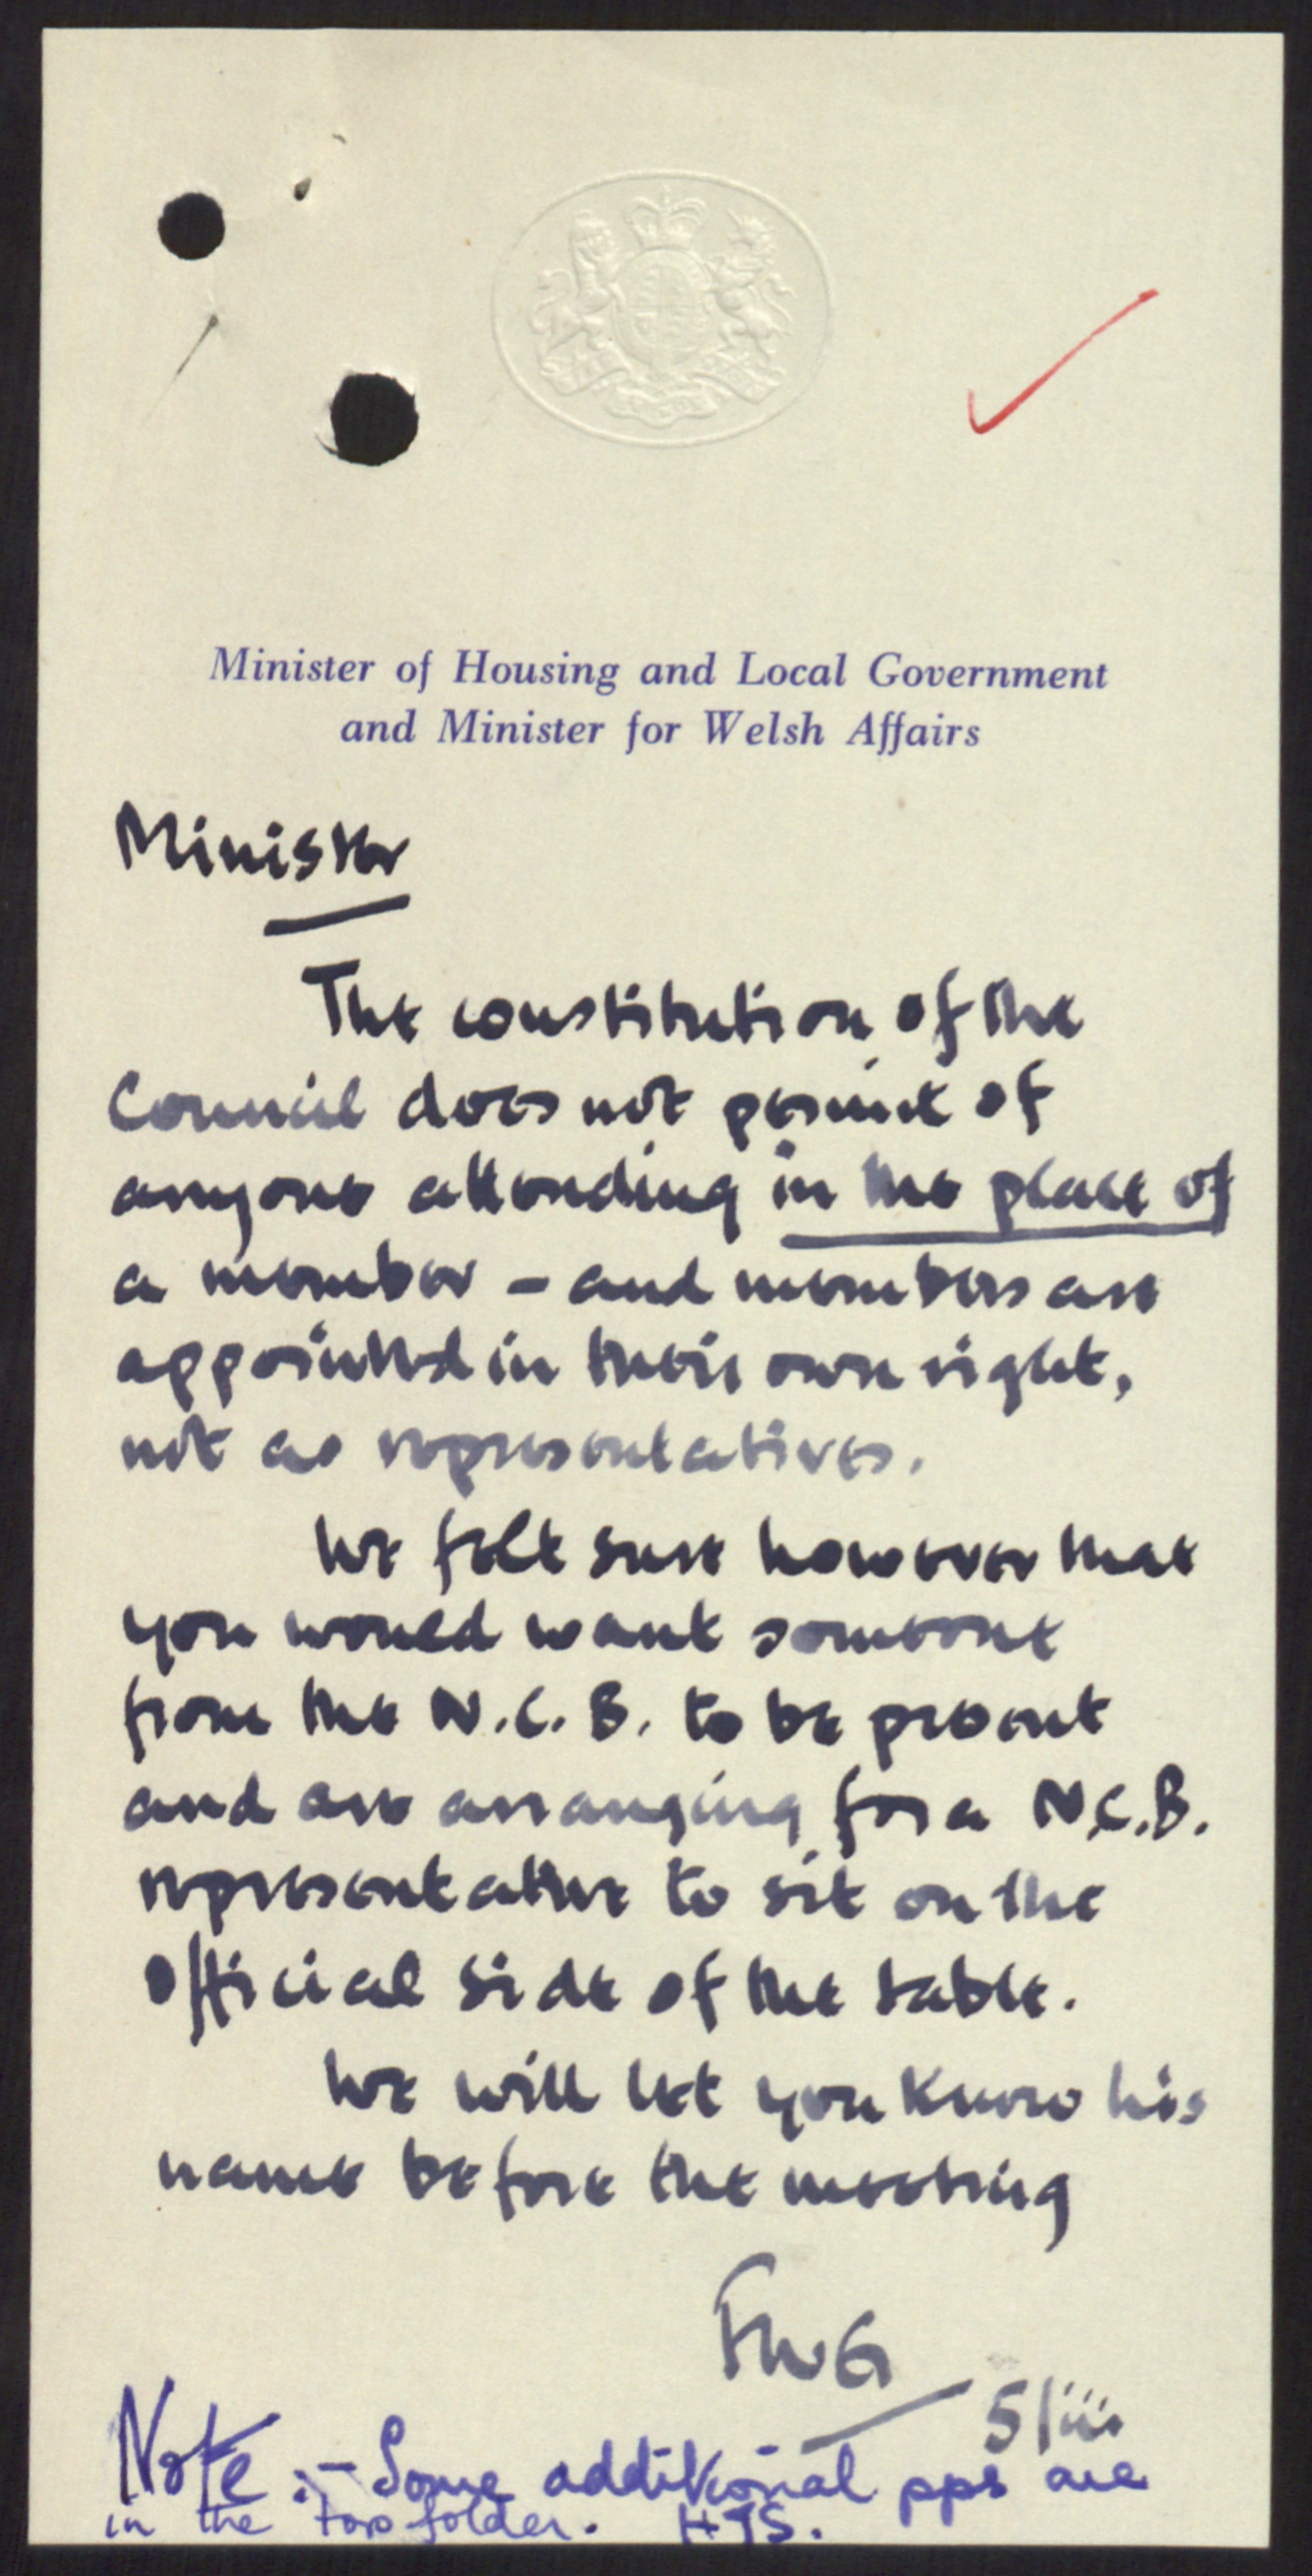 Minister of Housing and Local Government
and Minister for Welsh Affairs
Minister
The constitution of the
Council does not permit of
anyone attending in the place of
a member - and members are
appointed in their own right,
not as representatives.
We felt sure however that
you would want someone
from the N.C.B. to be present
and are arranging for a N.C.B.
representative to sit on the
official side of the table.
We will let you know his
name before the meeting
5/iii
Note :- Some additional pps are
in the top folder. HJS.